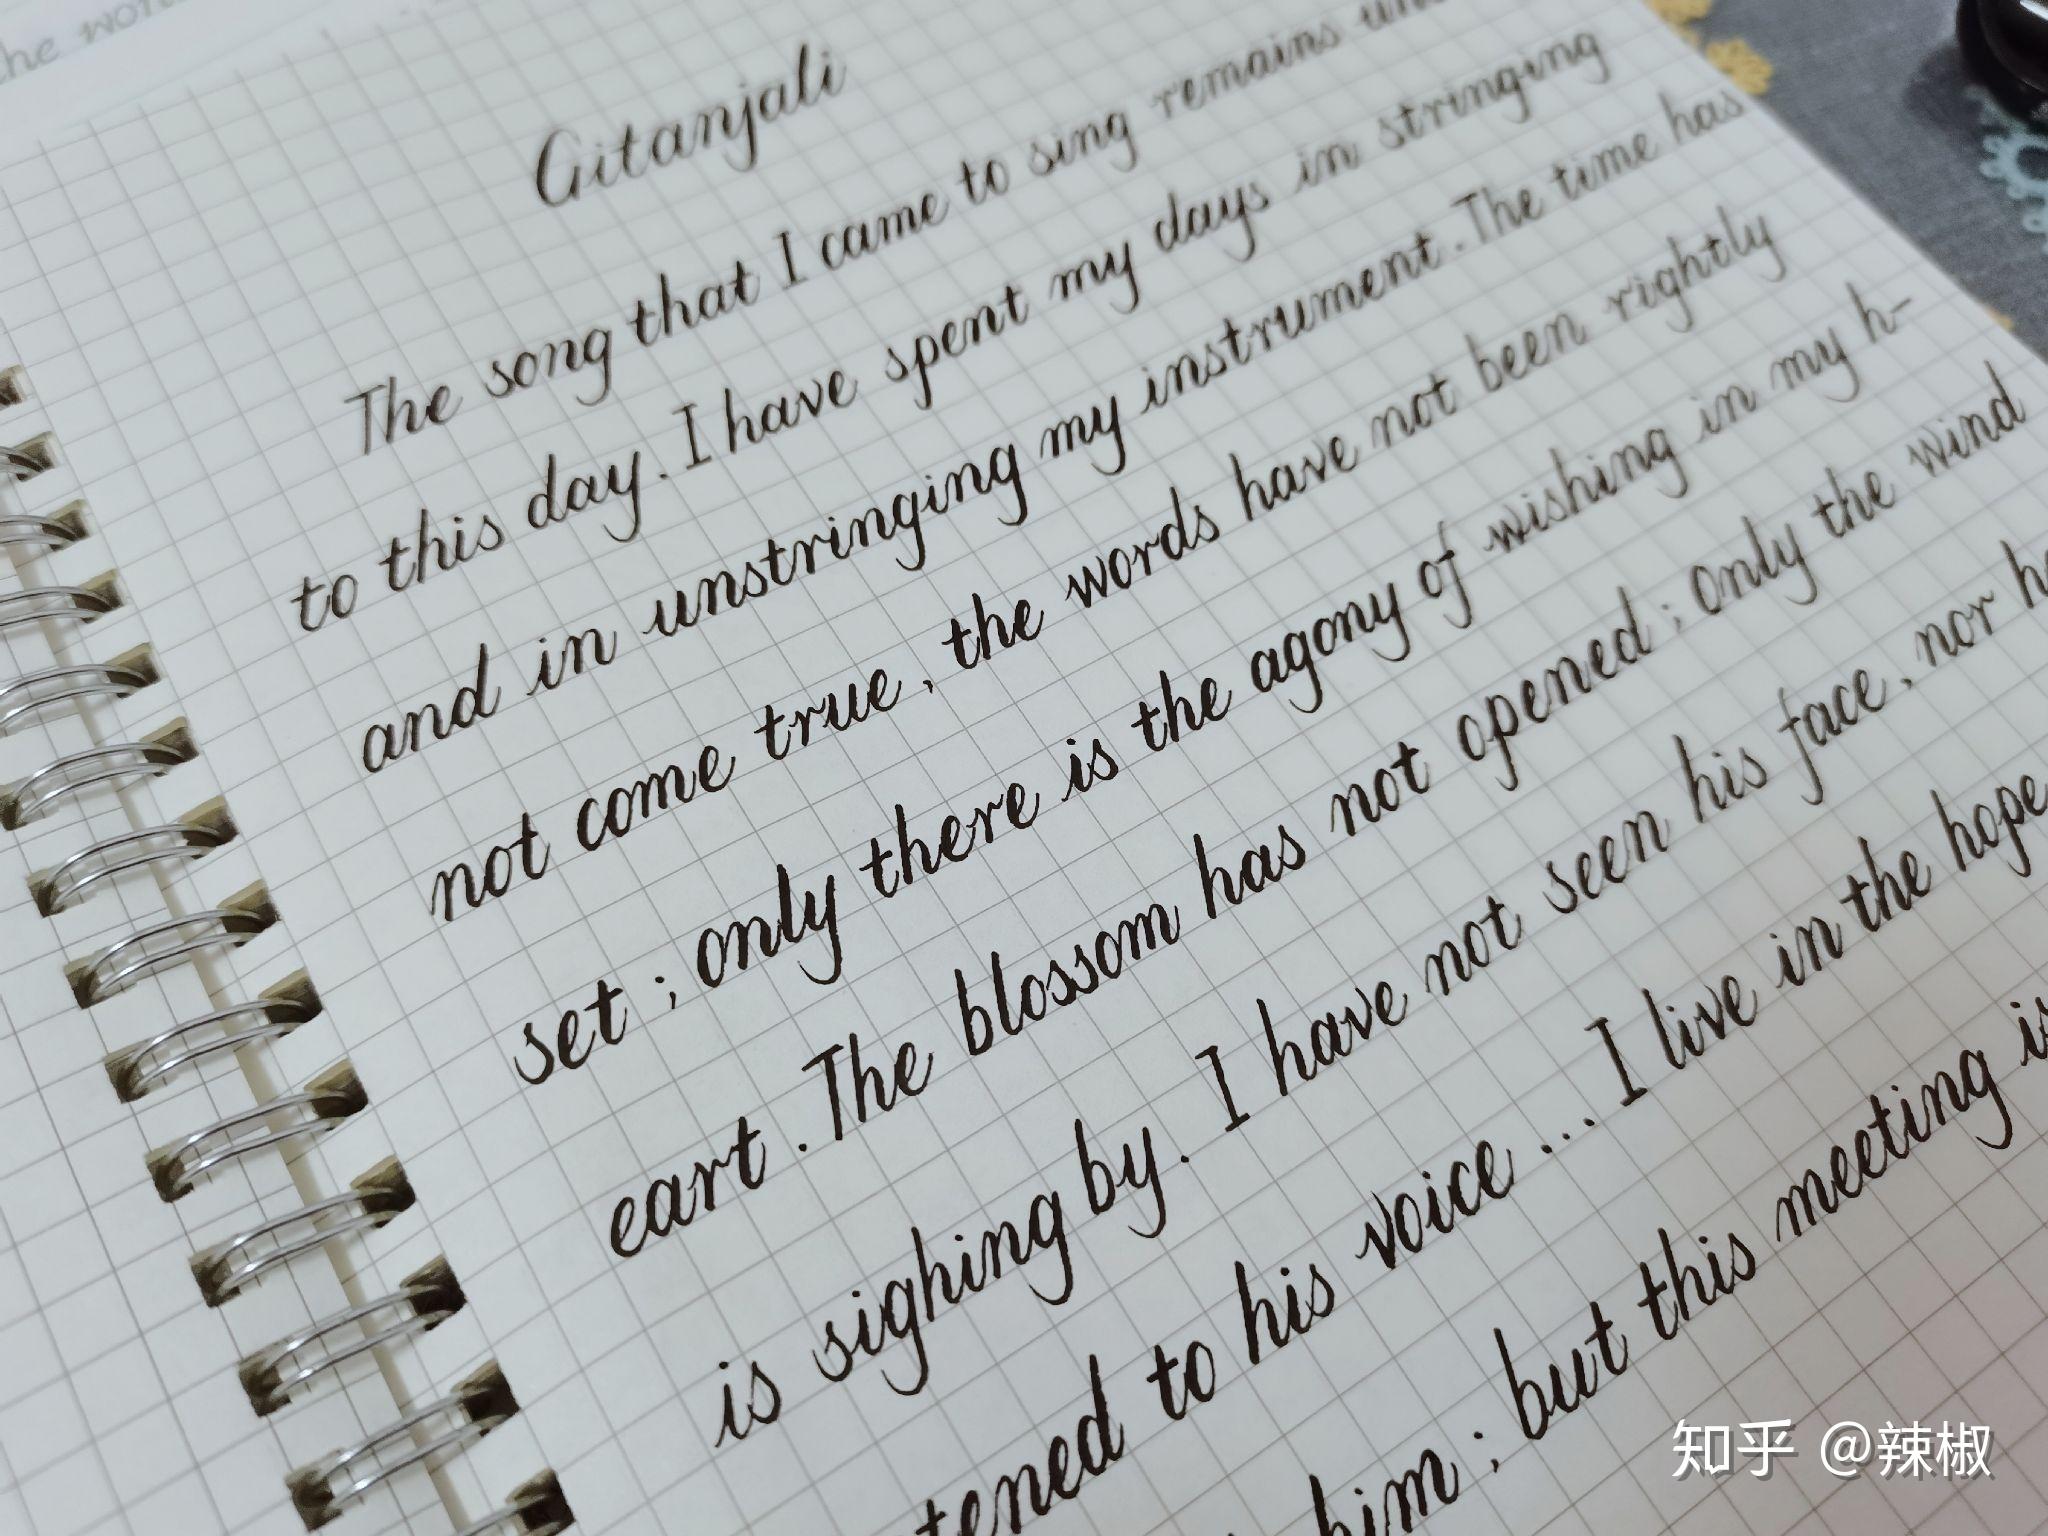 Gitanjali
The song that I came to sing remains
to this day. I have spent my days in stringing
and in unstringing my instrument. The time has
not come true, the words have not been rightly
set; only there is the agony of wishing in my h-
eart. The blossom has not opened; only the wind
is sighing by. I have not seen his face, nor
to his voice... I live in the hope
him; but this meeting is
知乎 @辣椒